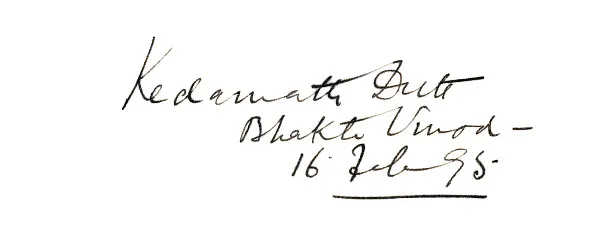 Kedarnath Dutt
Bhakti Vinod –
16 Feb 95.